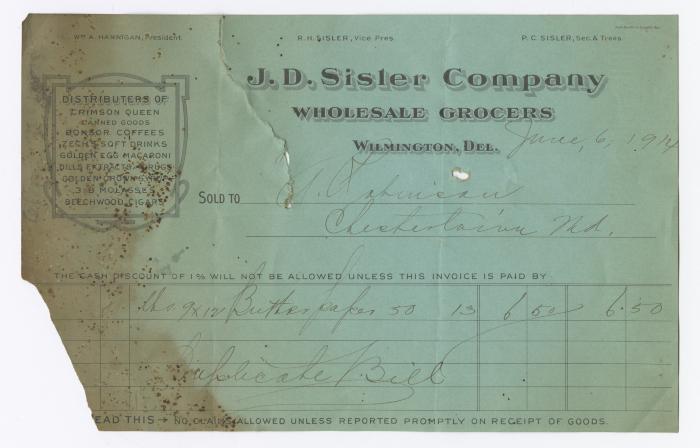 Wm A. Hannigan, President.
R. H. Sisler, Vice Pres.
P. C. Sisler, Sec. & Treas.
J. D. Sisler Company
Wholesale Grocers
Wilmington, Del.
June, 6, 1914
Distributers of
Crimson Queen
Canned Goods
Bonsor Coffees
Zech's Soft Drinks
Golden Egg Macaroni
Dill's Extracts, Drugs
Golden Crown Syrup
3 B Molasses
Beechwood Cigars
Sold to
Robinson
Chestertown Md.
The cash discount of 1% will not be allowed unless this invoice is paid by
9x12 Butter paper 50 13 6 50 6.50
Duplicate Bill
Read this → No claims allowed unless reported promptly on receipt of goods.